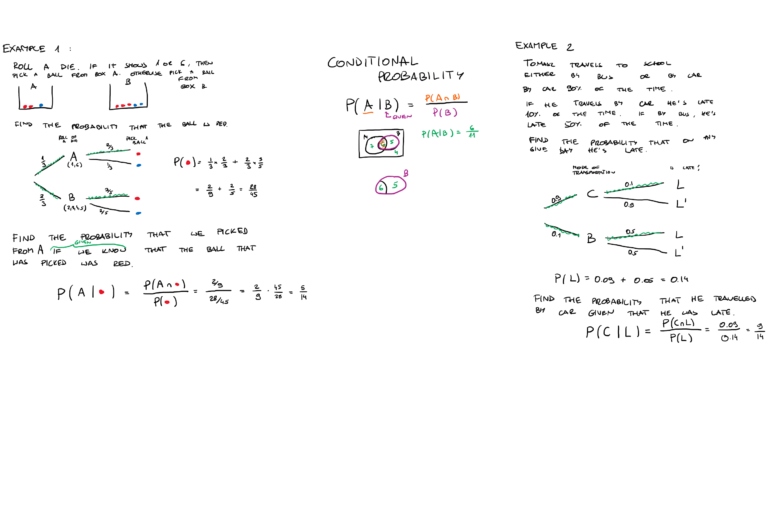 EXAMPLE 1 :
ROLL A DIE. IF IT SHOWS 1 OR 6, THEN
PICK A BALL FROM BOX A. OTHERWISE PICK A BALL
FROM
BOX B.
A
B
FIND THE PROBABILITY THAT THE BALL IS RED.
1/3
A
(1,6)
2/3
1/3
2/3
B
3/5
2/5
P( ) = 1/3 · 2/3 + 2/3 · 3/5
= 2/9 + 2/5 = 28/45
FIND THE PROBABILITY THAT WE PICKED
GIVEN
FROM A IF WE KNOW THAT THE BALL THAT
WAS PICKED WAS RED.
P(A | ) = P(A ∩ ) / P( ) = 2/9 / 28/45 = 2/9 · 45/28 = 5/14
CONDITIONAL
PROBABILITY
P(A|B) = P(A∩B) / P(B)
GIVEN
A
B
6
5
4
P(A|B) = 6/11
B
6 5
EXAMPLE 2
TOMASZ TRAVELS TO SCHOOL
EITHER BY BUS OR BY CAR
BY CAR 90% OF THE TIME.
IF HE TRAVELS BY CAR HE'S LATE
10% OF THE TIME. IF BY BUS, HE'S
LATE 50% OF THE TIME.
FIND THE PROBABILITY THAT ON ANY
GIVEN DAY HE'S LATE.
MODE OF
TRANSPORTATION
LATE?
0.9
C
0.1
L
0.9
L'
0.1
B
0.5
L
0.5
L'
P(L) = 0.09 + 0.05 = 0.14
FIND THE PROBABILITY THAT HE TRAVELLED
BY CAR GIVEN THAT HE WAS LATE.
P(C|L) = P(C∩L) / P(L) = 0.09 / 0.14 = 9/14